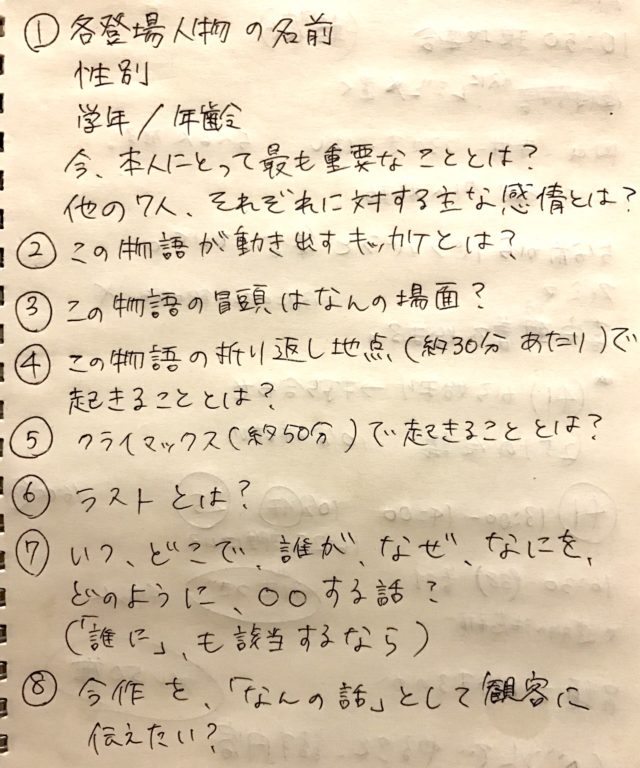 ① 各登場人物の名前
性別
学年/年齢
今、本人にとって最も重要なこととは?
他の7人、それぞれに対する主な感情とは?
② この物語が動き出すキッカケとは?
③ この物語の冒頭はなんの場面?
④ この物語の折り返し地点(約30分あたり)で
起きることとは?
⑤ クライマックス(約50分)で起きることとは?
⑥ ラストとは?
⑦ いつ、どこで、誰が、なぜ、なにを、
どのように、〇〇する話?
(「誰に」、も該当するなら)
⑧ 今作を、「なんの話」として観客に
伝えたい?